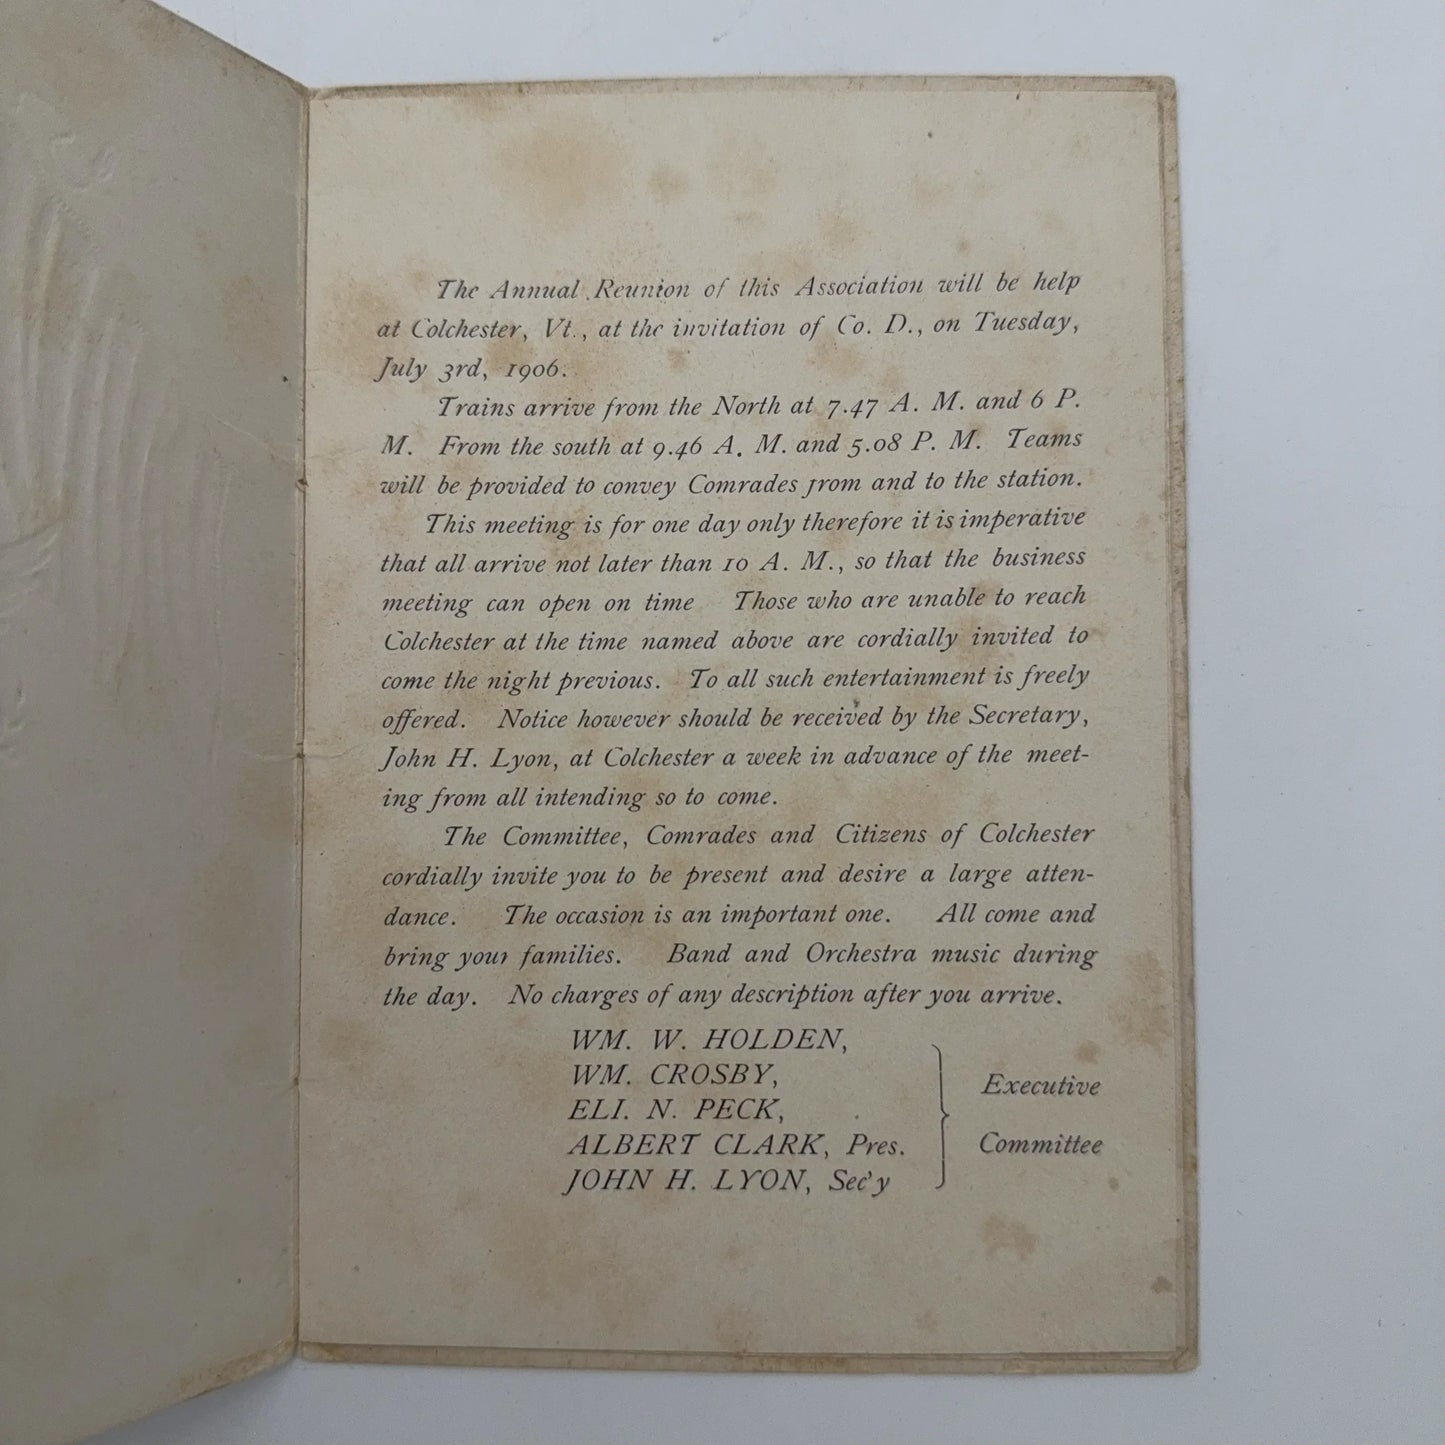 The Annual Reunion of this Association will be help
at Colchester, Vt., at the invitation of Co. D., on Tuesday,
July 3rd, 1906.
Trains arrive from the North at 7.47 A. M. and 6 P.
M. From the south at 9.46 A. M. and 5.08 P. M. Teams
will be provided to convey Comrades from and to the station.
This meeting is for one day only therefore it is imperative
that all arrive not later than 10 A. M., so that the business
meeting can open on time Those who are unable to reach
Colchester at the time named above are cordially invited to
come the night previous. To all such entertainment is freely
offered. Notice however should be received by the Secretary,
John H. Lyon, at Colchester a week in advance of the meet-
ing from all intending so to come.
The Committee, Comrades and Citizens of Colchester
cordially invite you to be present and desire a large atten-
dance. The occasion is an important one. All come and
bring your families. Band and Orchestra music during
the day. No charges of any description after you arrive.
WM. W. HOLDEN,
WM. CROSBY,
ELI. N. PECK,
ALBERT CLARK, Pres.
JOHN H. LYON, Sec'y
Executive
Committee